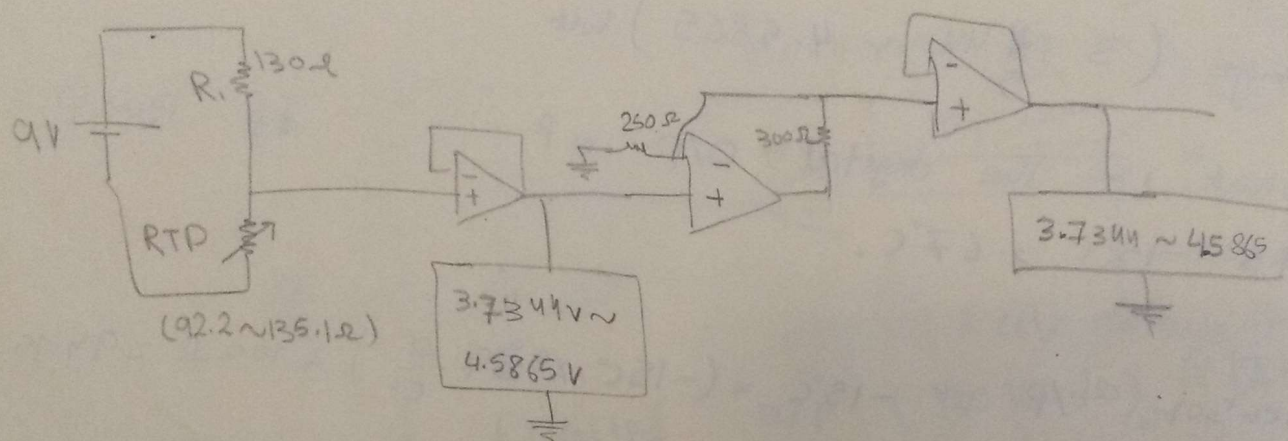 9V
R1
130Ω
RTD
(92.2~135.1Ω)
-
+
3.7344V~
4.5865V
250Ω
300Ω
-
+
-
+
3.7344~4.5865